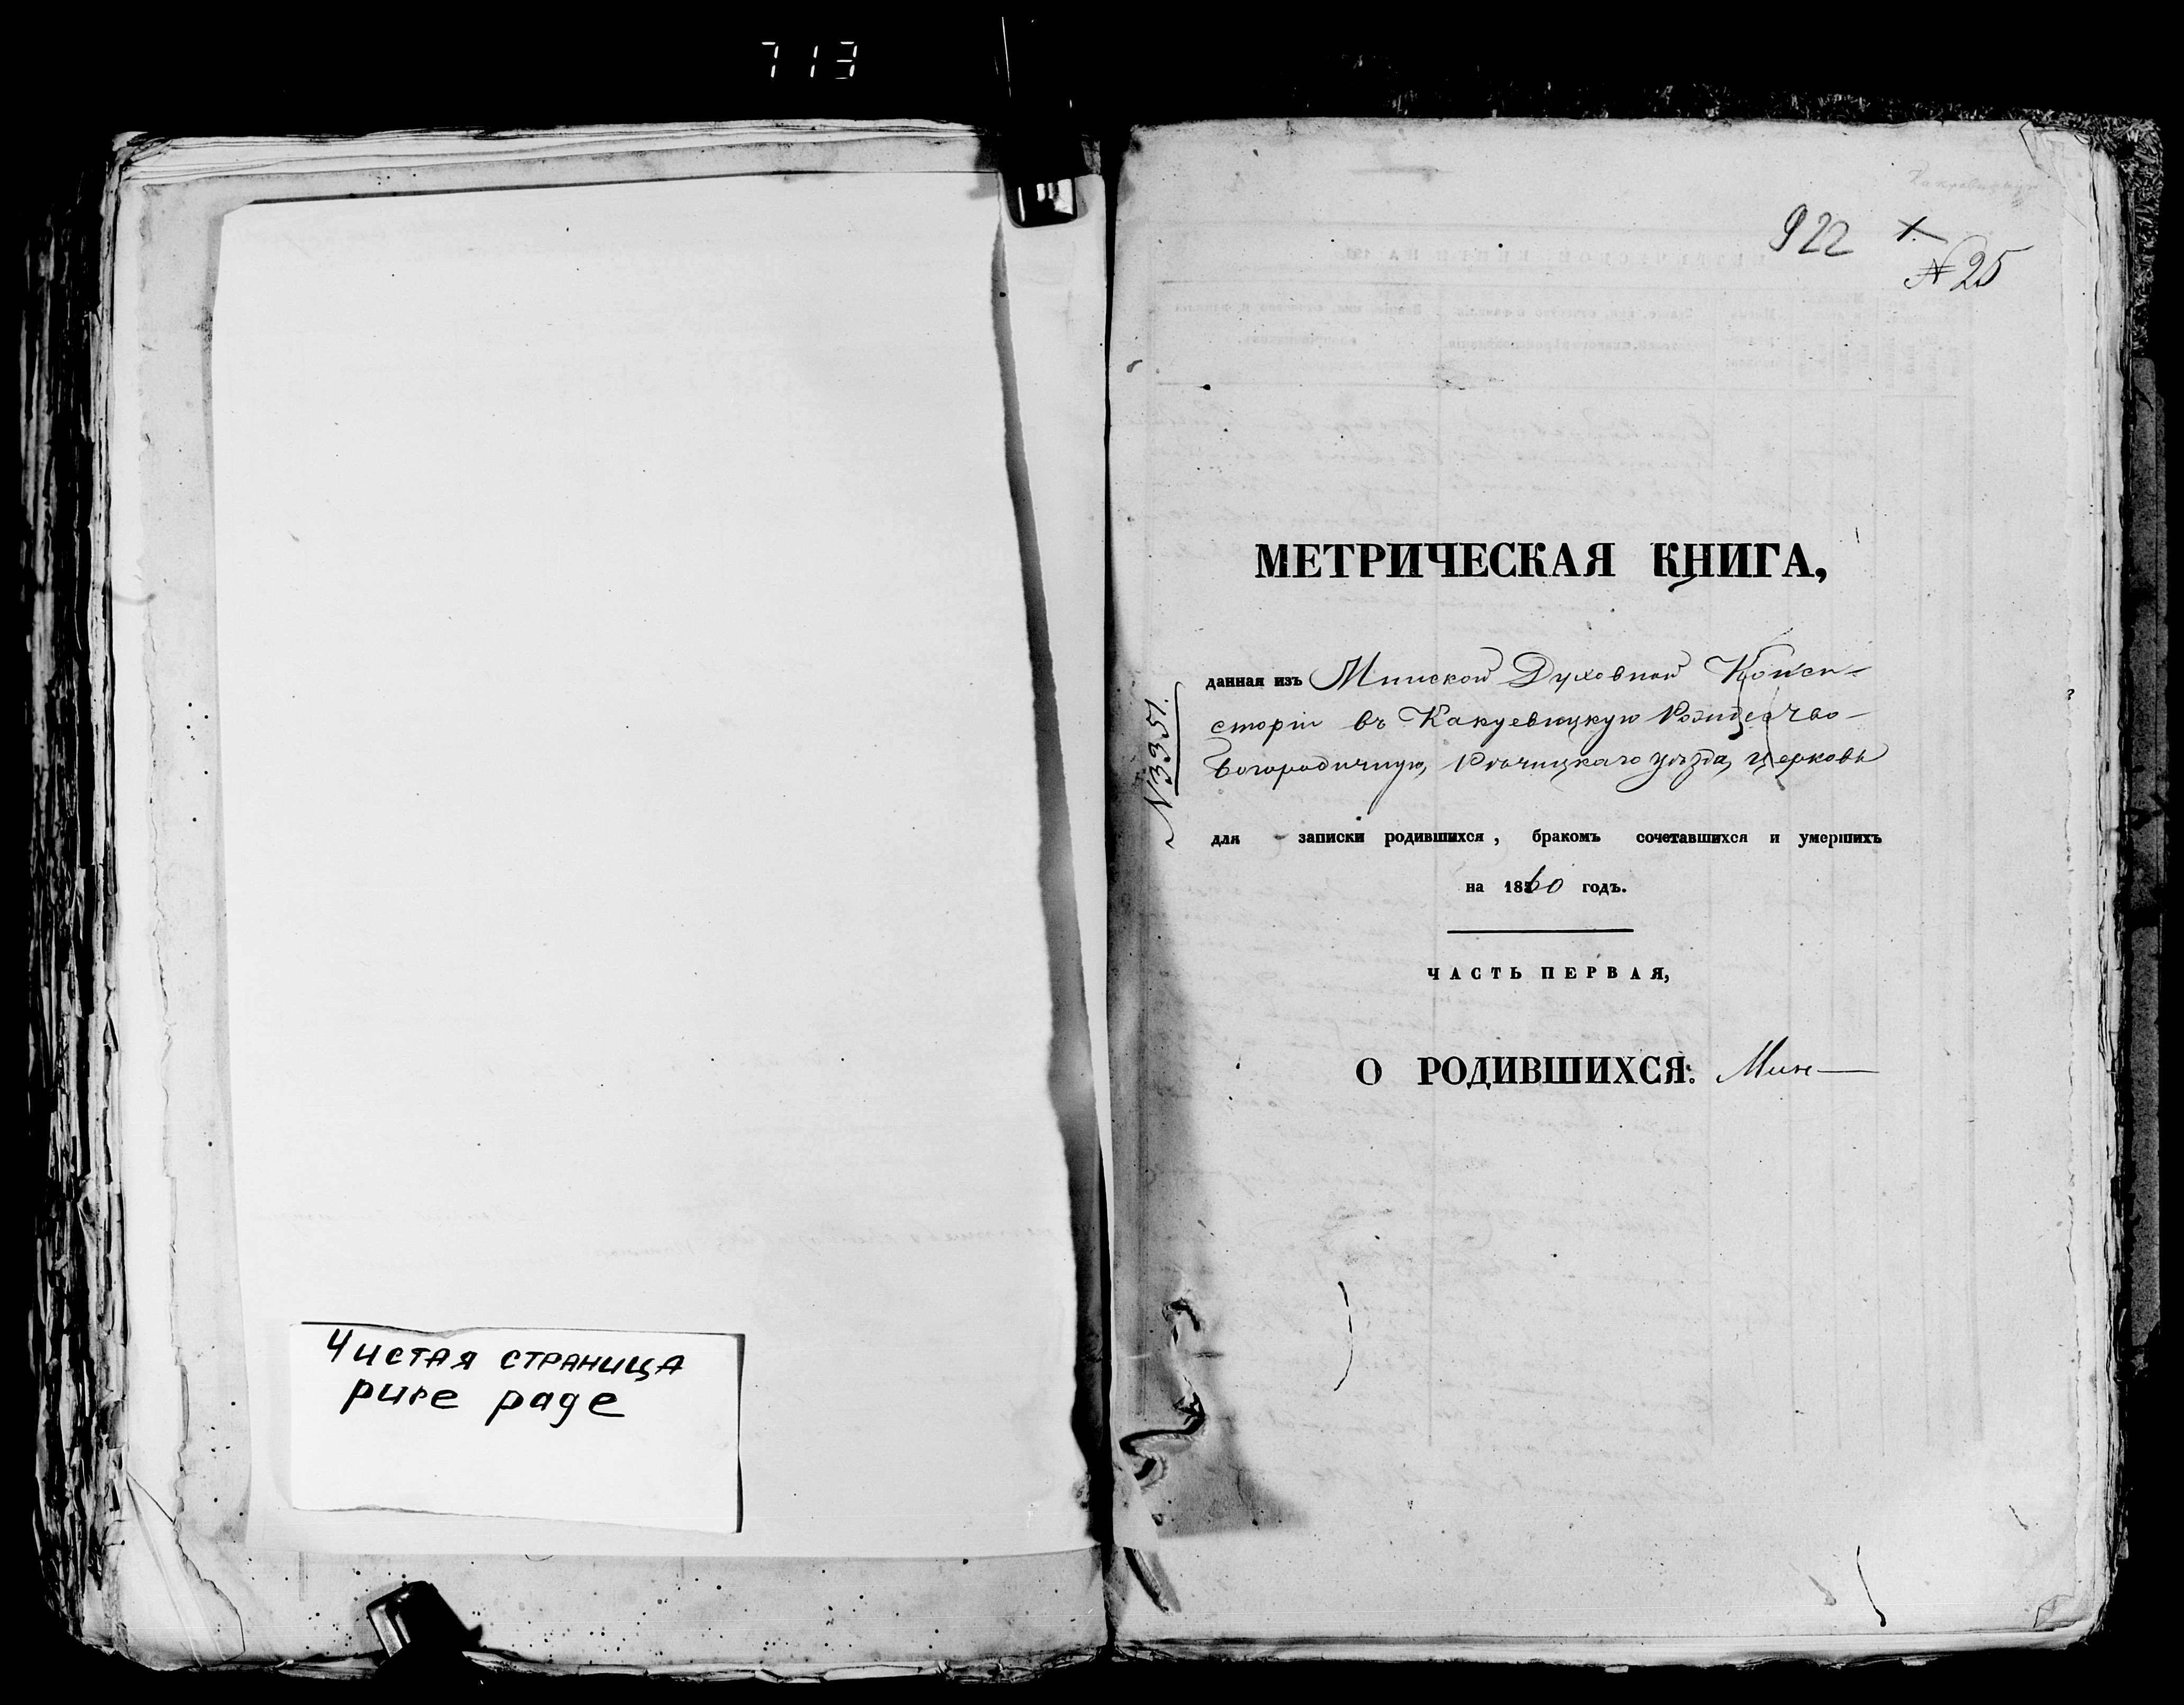 713
Чистая страница
pure page
922
№ 25
МЕТРИЧЕСКАЯ КНИГА,
данная изъ Минской Духовной Конси-
сторіи въ Какуевицкую Рождество-
Богородичную, Рѣчицкаго уѣзда, церковь
№ 3351.
для записки родившихся, бракомъ сочетавшихся и умершихъ
на 1860 годъ.
ЧАСТЬ ПЕРВАЯ,
О РОДИВШИХСЯ.